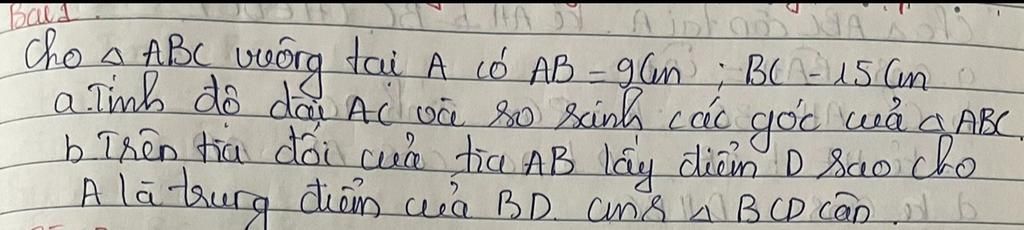 Bài 1.
Cho △ ABC vuông tại A có AB = 9cm ; BC = 15 cm
a. Tính độ dài AC và so sánh các góc của △ ABC.
b Trên tia đối của tia AB lấy điểm D sao cho
A là trung điểm của BD. cm △ BCD cân.